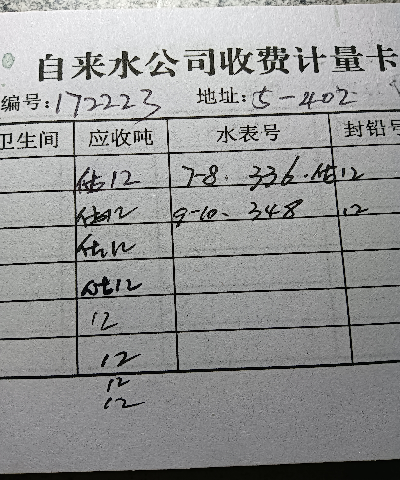 自来水公司收费计量卡
编号:172223 地址:5-402
卫生间 应收吨 水表号 封铅号
估12 7-8. 336.估12
估12 9-10. 348 12
估12
估12
12
12
12
12